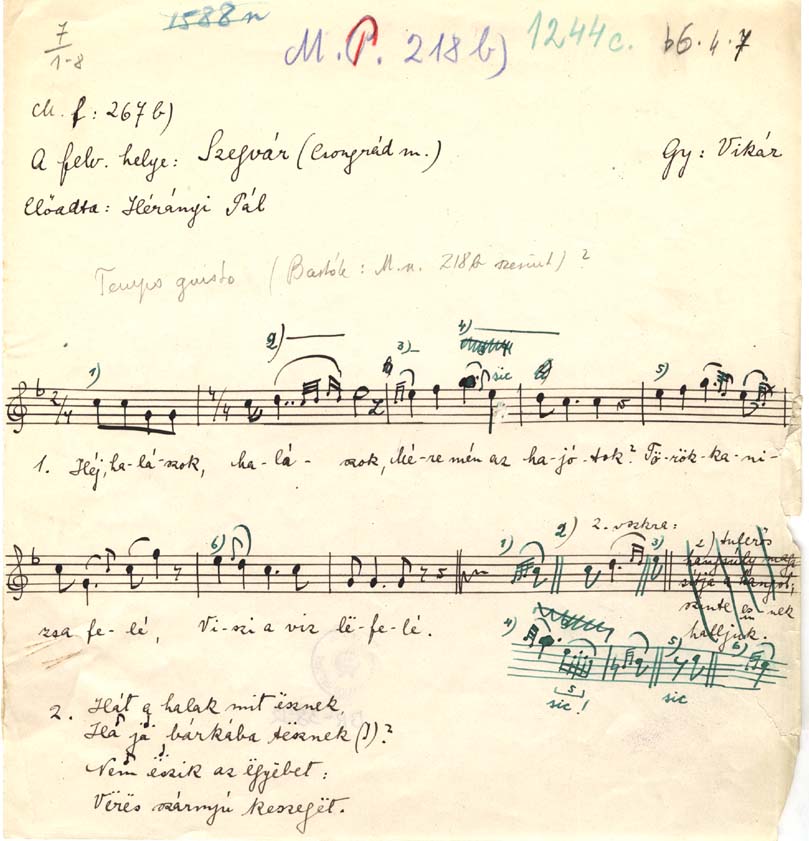 7
1-8
1588 n
M. P. 218 b)
1244c.
b6. 4. 7
M. f: 267 b)
A felv. helye: Szegvár (Csongrád m.)
Gy: Vikár
Előadta: Hérányi Pál
Tempo giusto (Bartók: M. n. 218b szerint)?
1) 2) 3) 4) sic 5)
2/4 4/4
1. Héj, ha-lá-szok, ha-lá-szok, Mé-re mén az ha-jó-tok? Tö-rök-ka-ni-
6) 1) 2) 2. vszkra: 3)
2) tulerős
hangsúly
szinte
halljuk.
zsa fe-lé, Vi-szi a viz lë-fe-lé.
4) 5) 6)
5
sic! sic
2. Hát a halak mit ësznek,
bárkába tësznek (?)?
Nëm ëszik az ëgyëbet:
Vërës szárnyú keszegët.